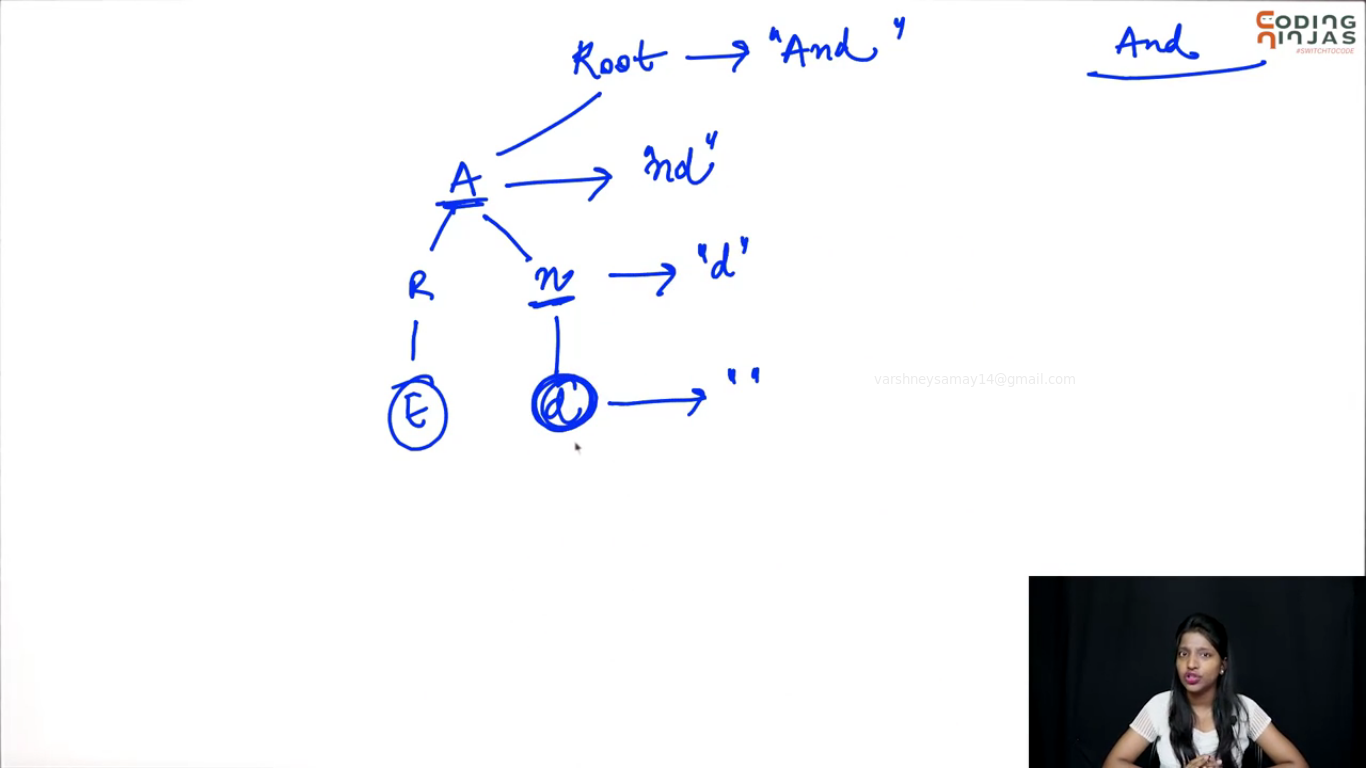 Root → "And"
And
CODING
NINJAS
#SWITCHTOCODE
A → "nd"
R
n → "d"
E
d → " "
varshneysamay14@gmail.com